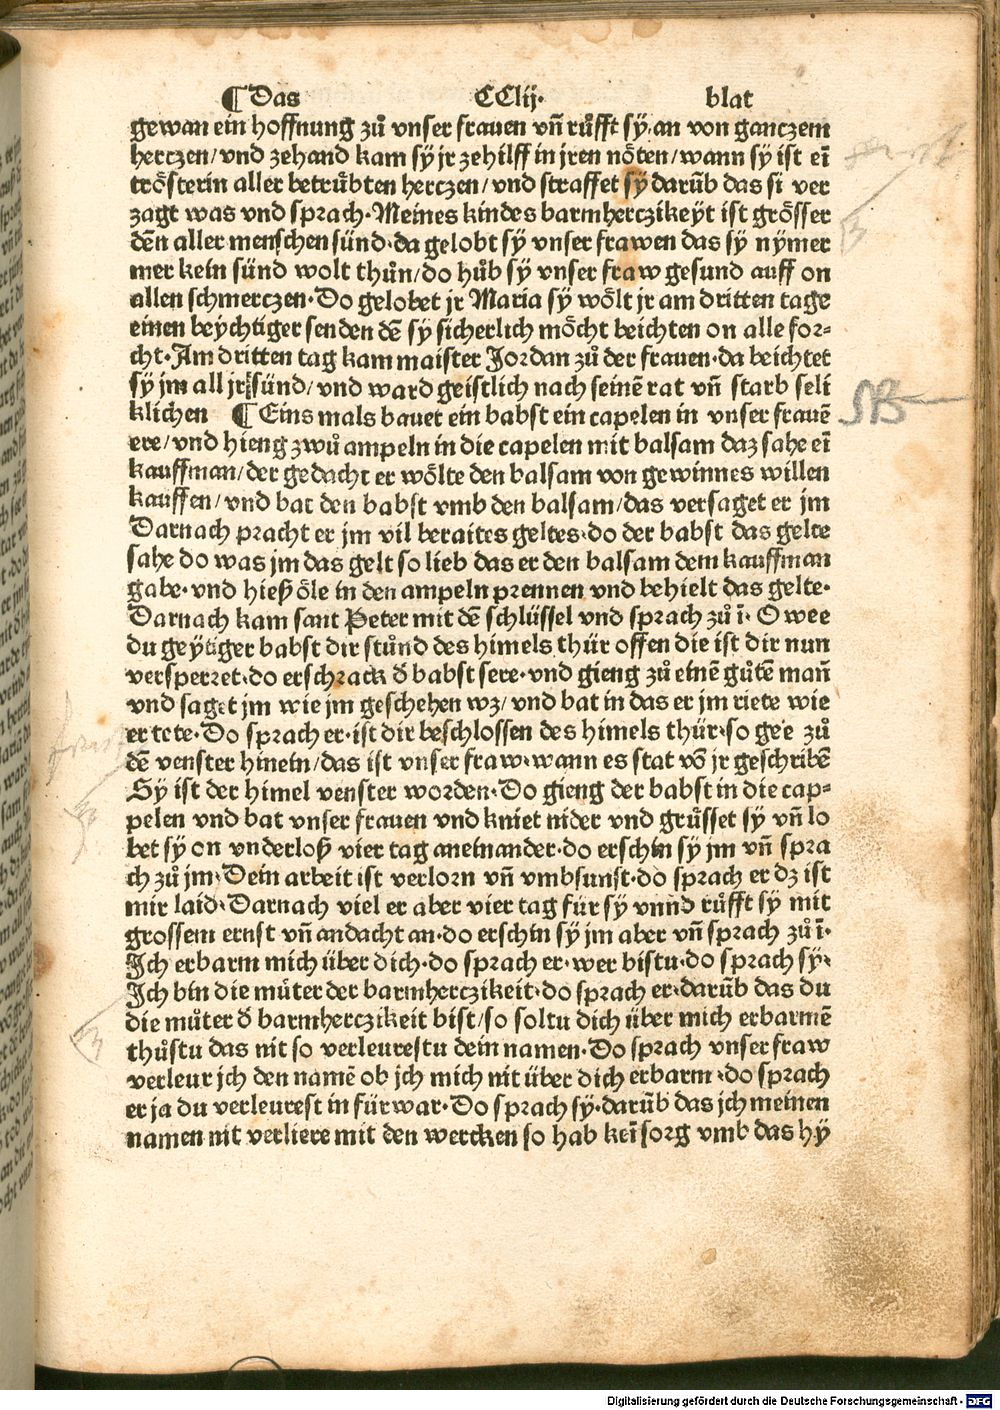 ¶ Das CClij· blat
gewan ein hoffnung zů vnser frauen vñ růfft sy an von ganczem
herczen/vnd zehand kam sy jr zehilff in jren nöten/wann sy ist eī
trösterin aller betrůbten herczen/vnd straffet sy darūb das si ver
zagt was vnd sprach·Meines kindes barmherczikeyt ist grösser
dēn aller menschen sünd·da gelobt sy vnser frawen das sy nymer
mer kein sünd wolt thůn/do hůb sy vnser fraw gesund auff on
allen schmerczen·Do gelobet jr Maria sy wölt jr am dritten tage
einen beychtiger senden dē sy sicherlich möcht beichten on alle for⸗
cht·Am dritten tag kam maister Jordan zů der frauen·da beichtet
sy jm all jre sünd/vnd ward geistlich nach seinē rat vñ starb seli
klichen ¶ Eins mals bauet ein babst ein capelen in vnser frauē
ere/vnd hieng zwů ampeln in die capelen mit balsam daz sahe eī
kauffman/der gedacht er wölte den balsam von gewinnes willen
kauffen/vnd bat den babst vmb den balsam/das versaget er jm
Darnach pracht er jm vil beraites geltes·do der babst das gelte
sahe do was jm das gelt so lieb das er den balsam dem kauffman
gabe·vnd hieß öle in den ampeln prennen vnd behielt das gelte·
Darnach kam sant Peter mit dē schlüssel vnd sprach zů ī·O wee
du geytiger babst dir stůnd des himels thür offen die ist dir nun
versperret·do erschrack ð babst sere·vnd gieng zů einē gůtē mañ
vnd saget jm wie jm geschehen wz/vnd bat in das er jm riete wie
er tete·Do sprach er·ist dir beschlossen des himels thür·so gee zů
dē venster hinein/das ist vnser fraw·wann es stat vō jr geschribē
Sy ist der himel venster worden·Do gieng der babst in die cap⸗
pelen vnd bat vnser frauen vnd kniet nider vnd grůsset sy vñ lo
bet sy on vnderloß vier tag aneinander·do erschin sy jm vñ spra
ch zů jm·Dein arbeit ist verlorn vñ vmbsunst·do sprach er dz ist
mir laid·Darnach viel er aber vier tag für sy vnnd růfft sy mit
grossem ernst vñ andacht an·do erschin sy jm aber vñ sprach zů ī·
Ich erbarm mich über dich·do sprach er·wer bistu·do sprach sy·
Ich bin die můter der barmherczikeit·do sprach er·darūb das du
die můter ð barmherczikeit bist/so soltu dich über mich erbarmē
thůstu das nit so verleurestu dein namen·Do sprach vnser fraw
verleur jch den namē ob jch mich nit über dich erbarm·do sprach
er ja du verleurest in fürwar·Do sprach sy·darūb das jch meinen
namen nit verliere mit den wercken so hab keī sorg vmb das hy
NB
Digitalisierung gefördert durch die Deutsche Forschungsgemeinschaft - DFG